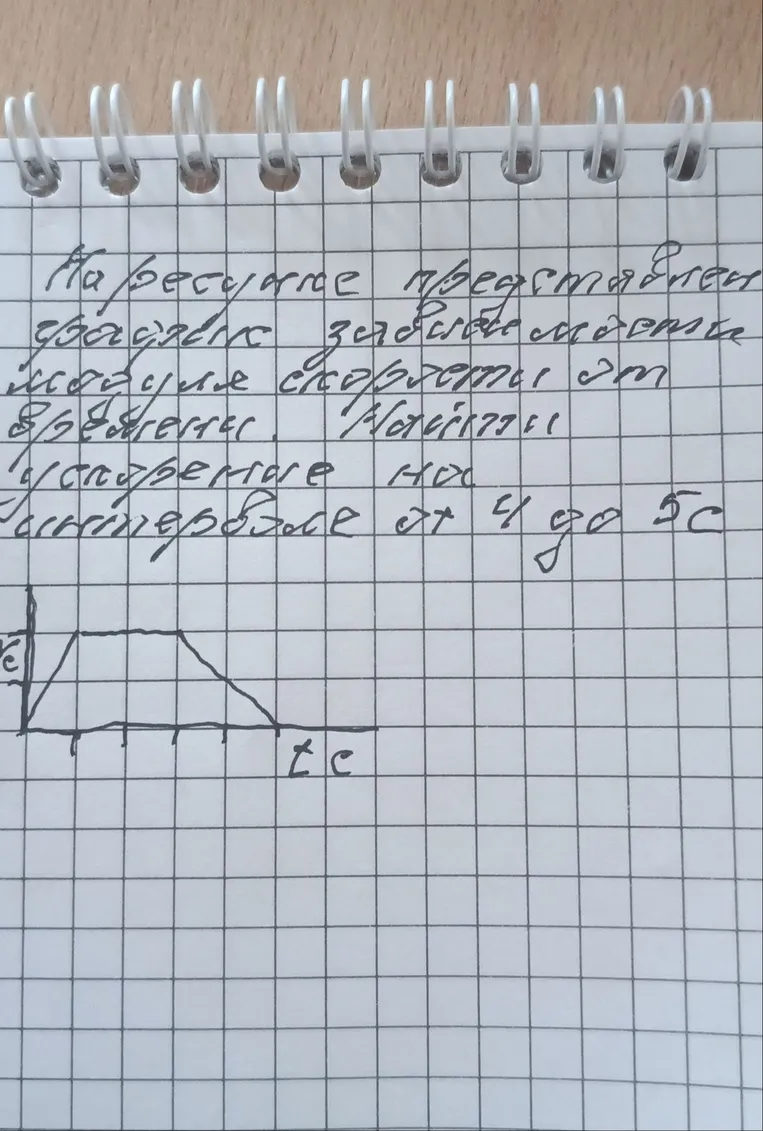 На ресунке представлен
график зависимости
модуля скорости от
времени. Найти
ускорение на
интервале от 4 до 5с
t с